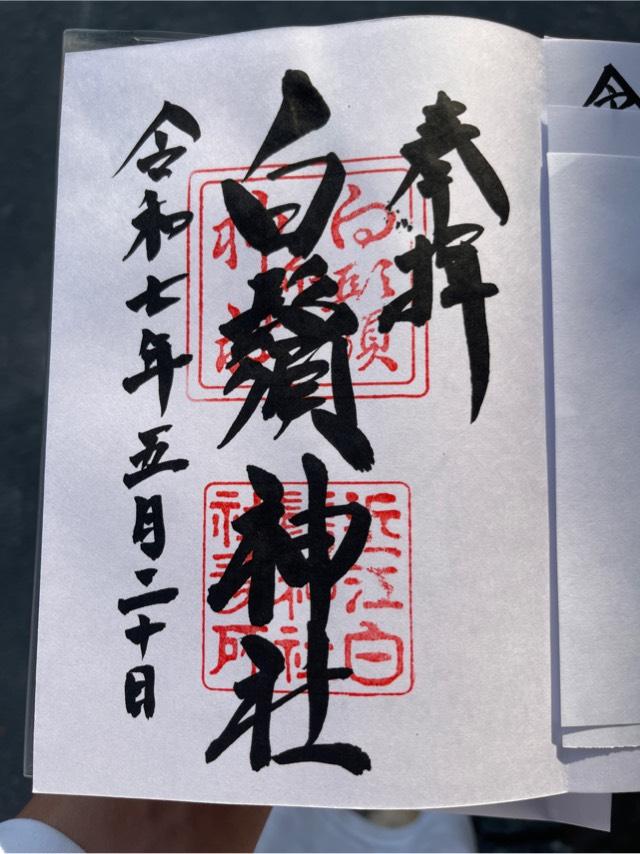 奉拝
白鬚神社
令和七年五月二十日
近江白
鬚神社
社務所
令